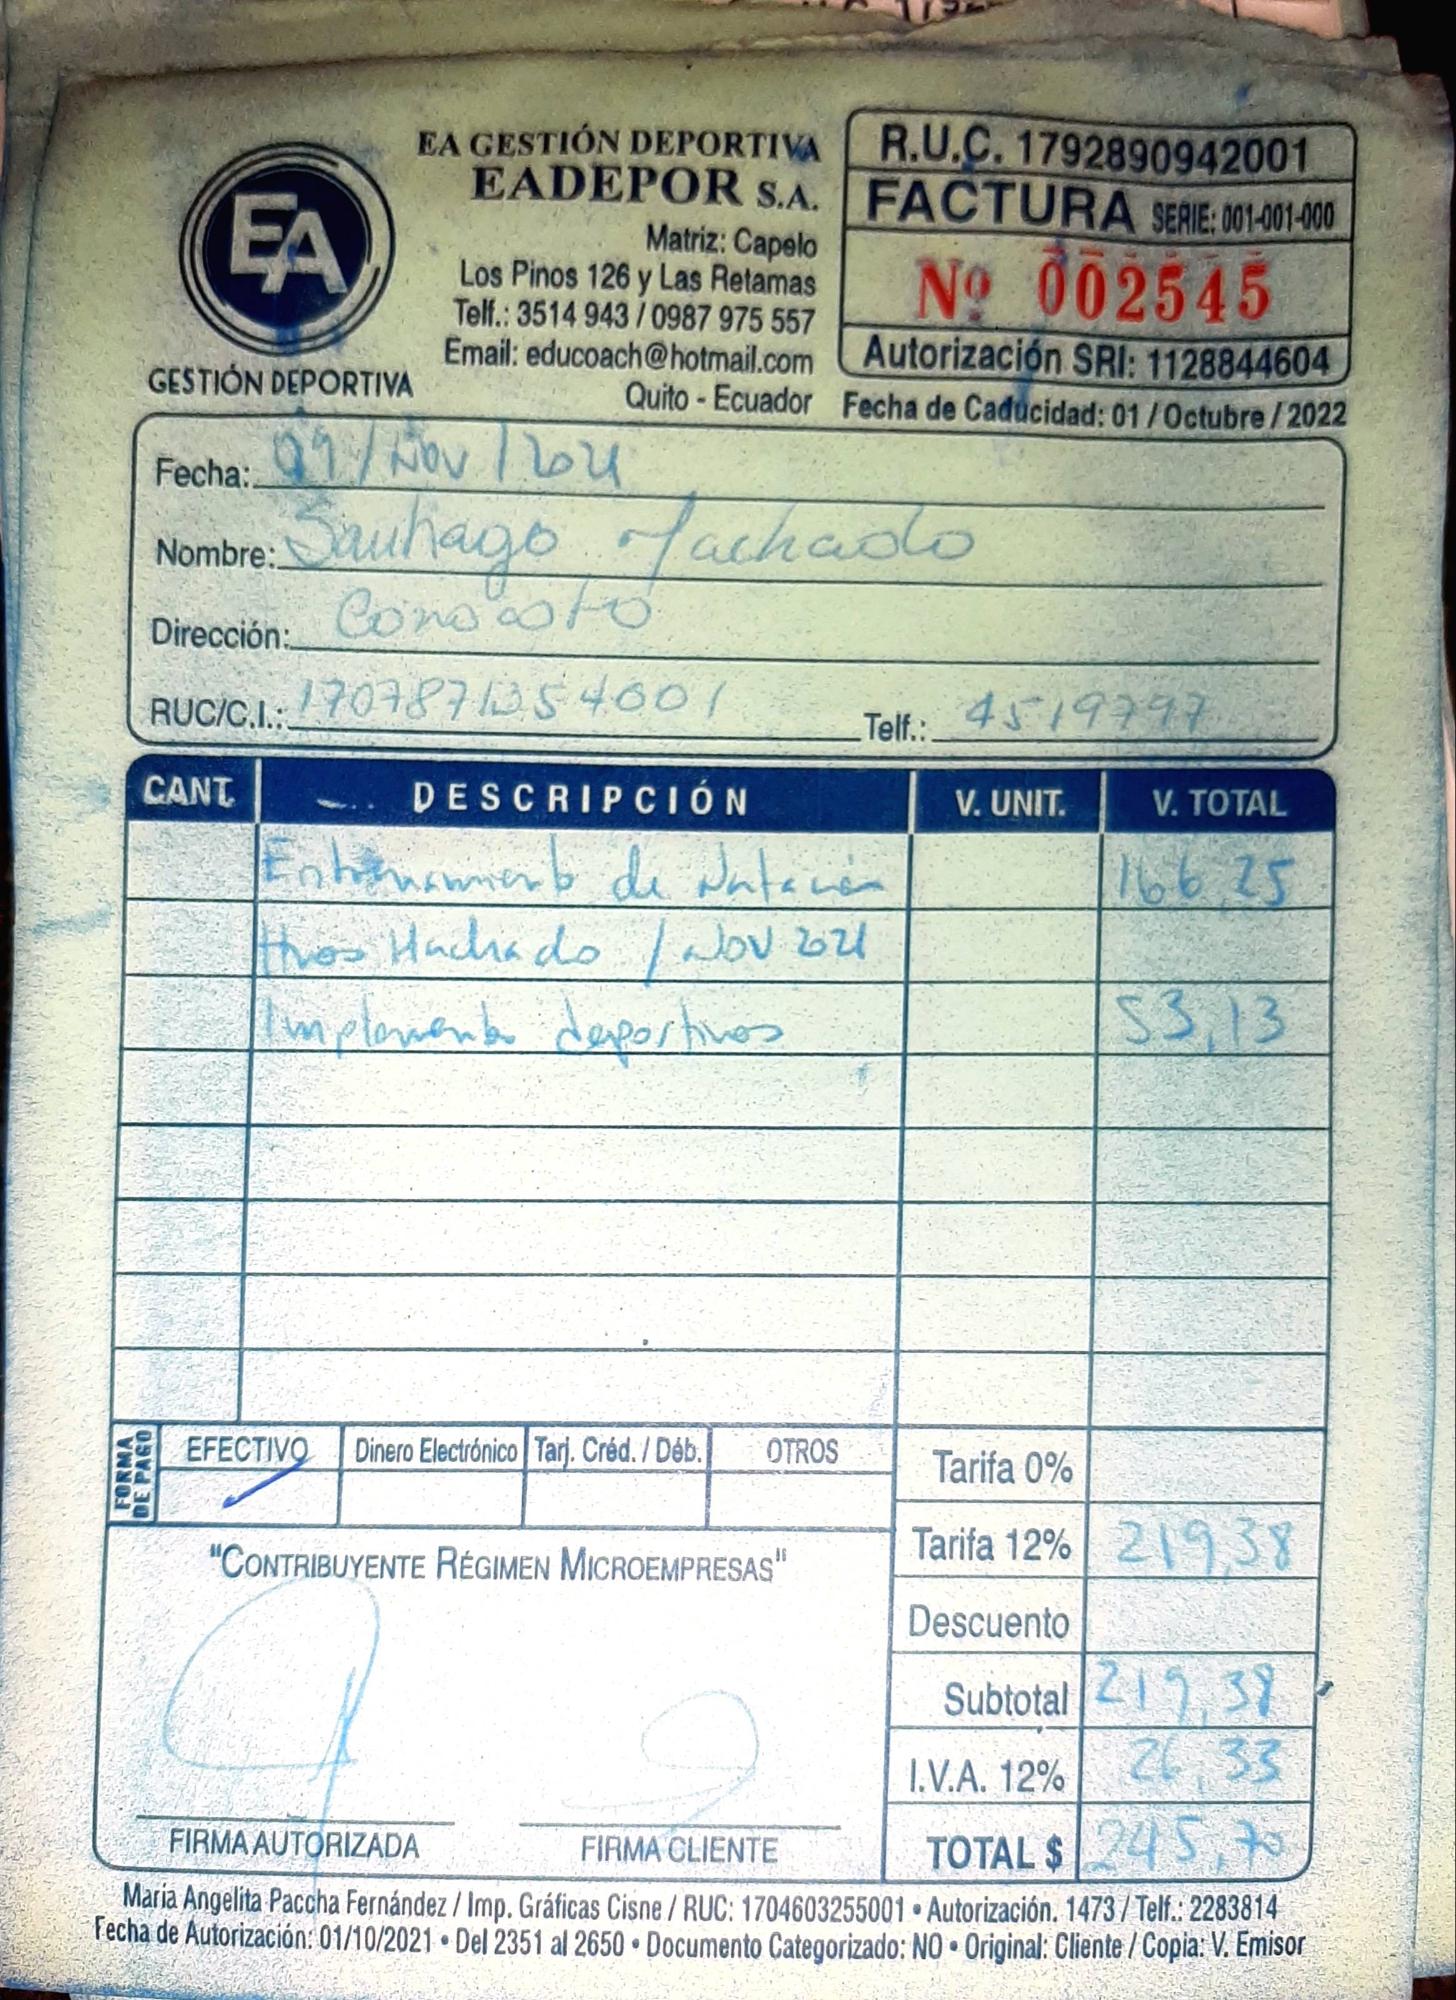 EA GESTIÓN DEPORTIVA
EADEPOR S.A.
Matriz: Capelo
Los Pinos 126 y Las Retamas
Telf.: 3514 943 / 0987 975 557
Email: educoach@hotmail.com
Quito - Ecuador
EA
GESTIÓN DEPORTIVA
R.U.C. 1792890942001
FACTURA SERIE: 001-001-000
Nº 002545
Autorización SRI: 1128844604
Fecha de Caducidad: 01 / Octubre / 2022
Fecha: 09/Nov/2021
Nombre: Santiago Machado
Dirección: Conocoto
RUC/C.I.: Telf.: 4519797
CANT. DESCRIPCIÓN V. UNIT. V. TOTAL
Entrenamiento de Natación 166,25
Hnos Machado / Nov 2021
Implementos deportivos 53,13
FORMA DE PAGO
EFECTIVO Dinero Electrónico Tarj. Créd. / Déb. OTROS
Tarifa 0%
Tarifa 12% 219,38
Descuento
Subtotal 219,38
I.V.A. 12% 26,33
TOTAL $ 245,70
"CONTRIBUYENTE RÉGIMEN MICROEMPRESAS"
FIRMA AUTORIZADA FIRMA CLIENTE
María Angelita Paccha Fernández / Imp. Gráficas Cisne / RUC: 1704603255001 • Autorización. 1473 / Telf.: 2283814
Fecha de Autorización: 01/10/2021 • Del 2351 al 2650 • Documento Categorizado: NO • Original: Cliente / Copia: V. Emisor